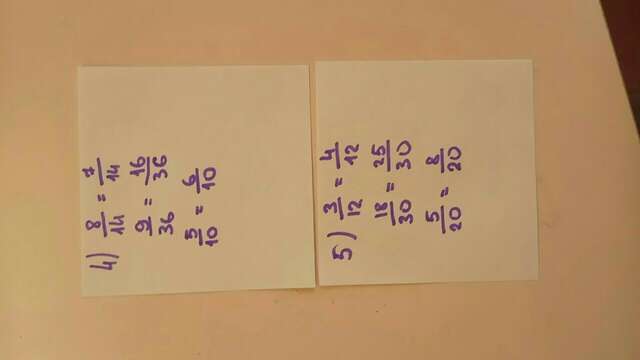 4) 8/14 = 7/14
9/36 = 16/36
5/10 = 6/10
5) 3/12 = 4/12
18/30 = 25/30
5/20 = 8/20